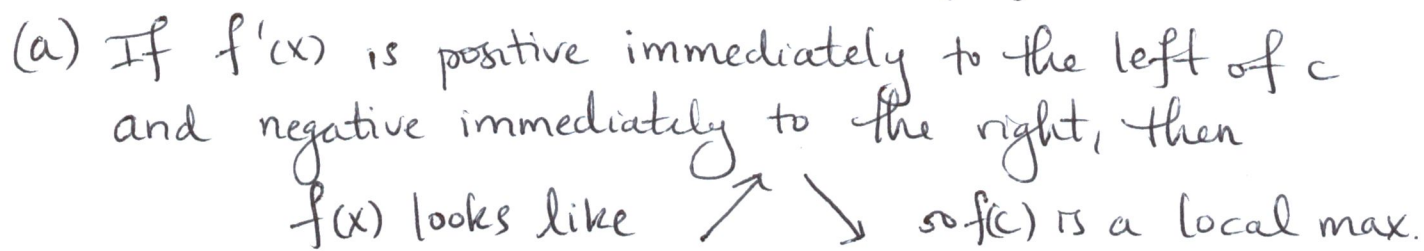 (a) If f'(x) is positive immediately to the left of c
and negative immediately to the right, then
f(x) looks like ↗ ↘ so f(c) is a local max.